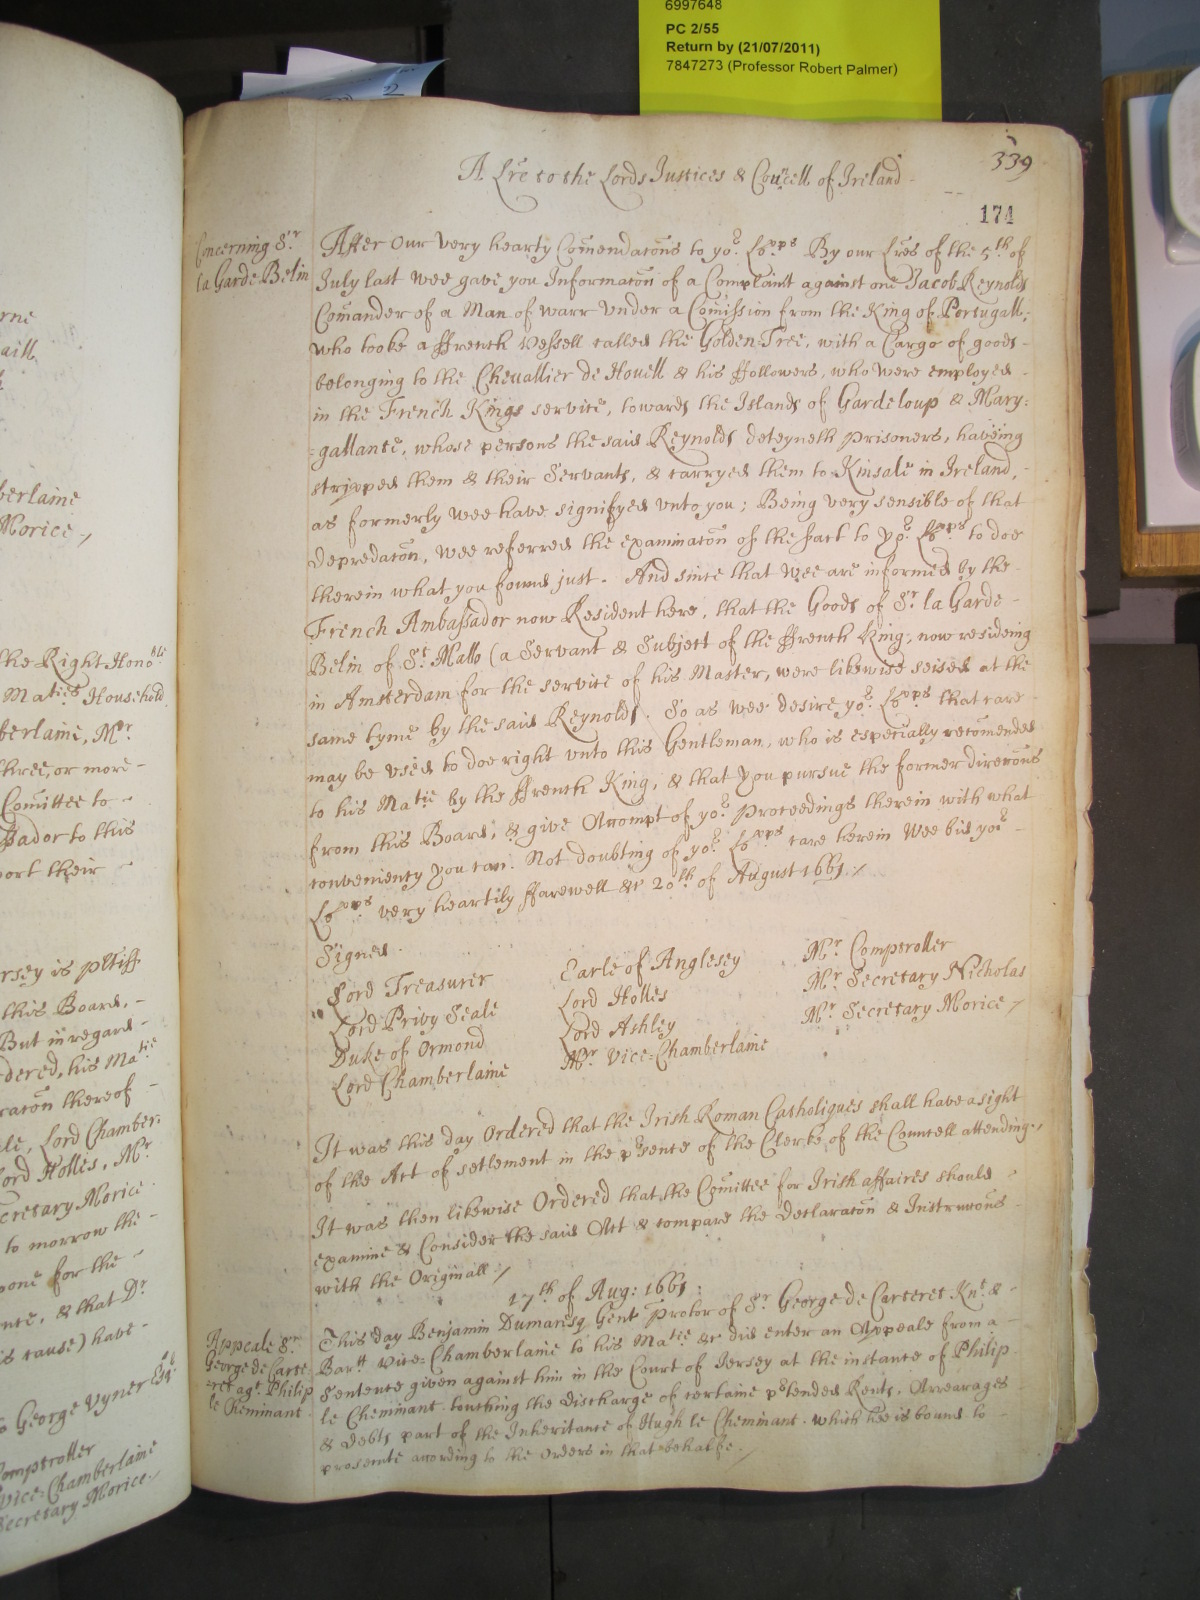 6997648
PC 2/55
Return by (21/07/2011)
7847273 (Professor Robert Palmer)
339
174
A Lrē to the Lords Justices & Councell of Ireland
Concerning Sr
la Garde Belin
After Our very hearty Com̄endatōns to yor Lopps By our Lrēs of the 5th of
July last wee gave you Informatōn of a Complaint against one Jacob Reynolds
Com̄ander of a Man of warr Under a Com̄ission from the King of Portugall,
who tooke a ffrench Vessell called the Golden-Tree, with a Cargo of goods
belonging to the Chevallier de Houell & his ffollowers, who were employed
in the French Kings service, towards the Islands of Gardeloup & Mary:
=gallante, whose persons the said Reynolds deteyneth Prisoners, haveing
stripped them & their Servants, & carryed them to Kinsale in Ireland,
as formerly wee have signifyed unto you; Being very sensible of that
Depredatōn, wee referred the examinatōn of the fact to yor Lopps to doe
therein what you found just. And since that Wee are informed by the
French Ambassador now Resident here, that the Goods of Sr la Garde
Belin of St Mallo (a Servant & Subject of the ffrench King, now resideing
in Amsterdam for the service of his Master, were likewise seised at the
same tyme by the said Reynolds. So as wee desire yor Lopps that care
may be used to doe right unto this Gentleman, who is especially recom̄ended
to his Matie by the ffrench King, & that you pursue the former direcōns
from this Board, & give Accompt of yor Proceedings therein with what
conveniency you can. Not doubting of yor Lopps care herein Wee bid yor
Lopps very heartily ffarewell &c 20th of August 1661./
Signed.
Lord Treasurer
Lord Privy Seale
Duke of Ormond
Lord Chamberlaine
Earle of Anglesey
Lord Holles
Lord Ashley
Mr Vice=Chamberlaine
Mr Comptroller
Mr Secretary Nicholas
Mr Secretary Morice /
It was this day Ordered that the Irish Roman Catholiques shall have a sight
of the Act of setlement in the prsence of the Clerke of the Councell attending,
It was then likewise Ordered that the Com̄ittee for Irish affaires should
examine & Consider the said Act & compare the Declaratōn & Instrucōns
with the Originall /
17th of Aug: 1661:
Appeale Sr
George de Carte
=ret agt Philip
le Cheminant
This day Benjamin Dumaresq Gent Proctor of Sr George de Carteret Knt &
Bartt Vice=Chamberlaine to his Matie &c did enter an Appeale from a
Sentence given against him in the Court of Jersey at the instance of Philip
le Cheminant touching the discharge of certaine prtended Rents, Arrearages
& Debts part of the Inheritance of Hugh le Cheminant. which hee is bound to
prosecute according to the Orders in that behalfe./
berlaine
Morice /
the Right Honoble
Maties Household
berlaine, Mr
three, or more
Com̄ittee to
ssador to this
port their
rsey is pltiff
this Board,
But in regard
dered, his Matie
ratōn thereof
Lord Chamber:
Lord Holles, Mr
cretary Morice
to morrow the
pone for the
& that Dr
is cause) have
George Vyner Esqr
omptroller
Vice=Chamberlaine
Secretary Morice /